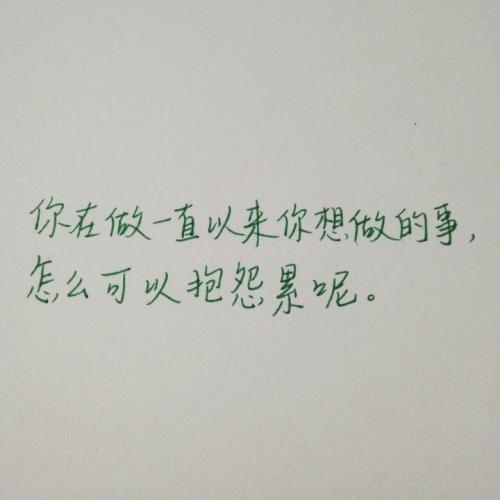 你在做一直以来你想做的事,
怎么可以抱怨累呢。